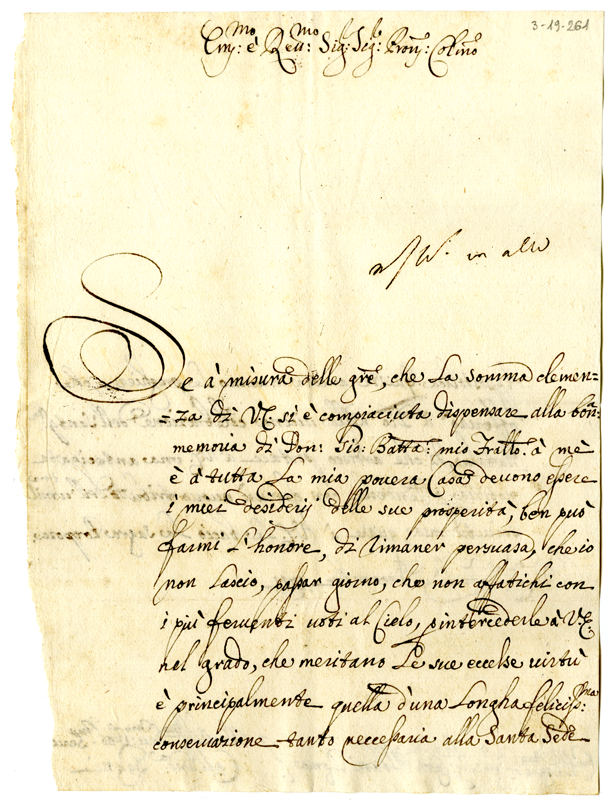 3-19-261
Em:mo è Reu:mo Sig:r Sig:r Pron: Colmo
in
Se à misura delle gre, che La somma clemen=
=za di V.E. si è compiaciuta dispensare alla bon:
memoria di Don: Gio: Batta: mio Fratto: à mè
è à tutta La mia pouera Casa deuono essere
i miei desiderij delle sue prosperità, ben può
farmi L'honore, di rimaner persuasa, che io
non Lascio, passar giorno, che non affatichi con
i più feruenti uoti al Cielo, p intercederle à V.E.
nel grado, che meritano Le sue eccelse uirtù
è principalmente quella d'una Longha feliciss:ma
conseruatione tanto necessaria alla Santa Sede